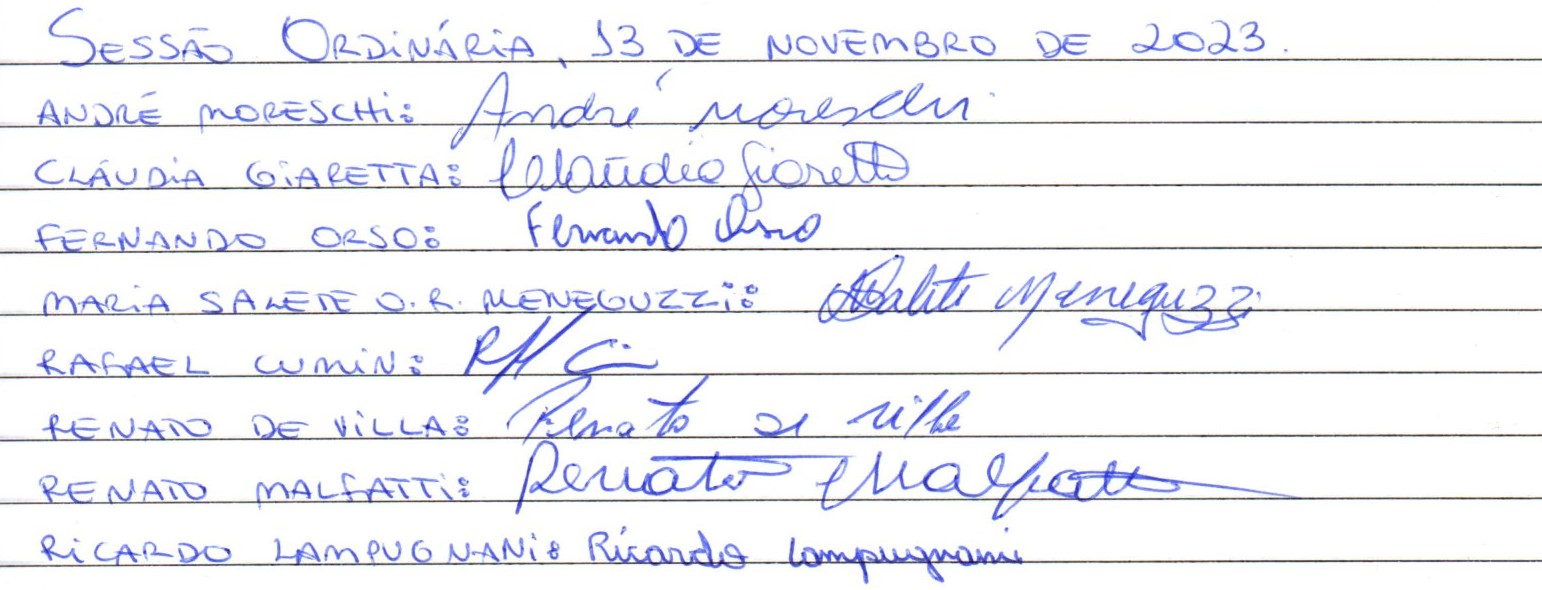 SESSÃO ORDINÁRIA, 13 DE NOVEMBRO DE 2023.
ANDRÉ MORESCHI: André Moreschi
CLÁUDIA GIARETTA: Claudia Giaretta
FERNANDO ORSO: Fernando Orso
MARIA SALETE O. R. MENEGUZZI: Salete Meneguzzi
RAFAEL CUMIN:
RENATO DE VILLA: Renato de Villa
RENATO MALFATTI: Renato Malfatti
RICARDO LAMPUGNANI: Ricardo Lampugnani